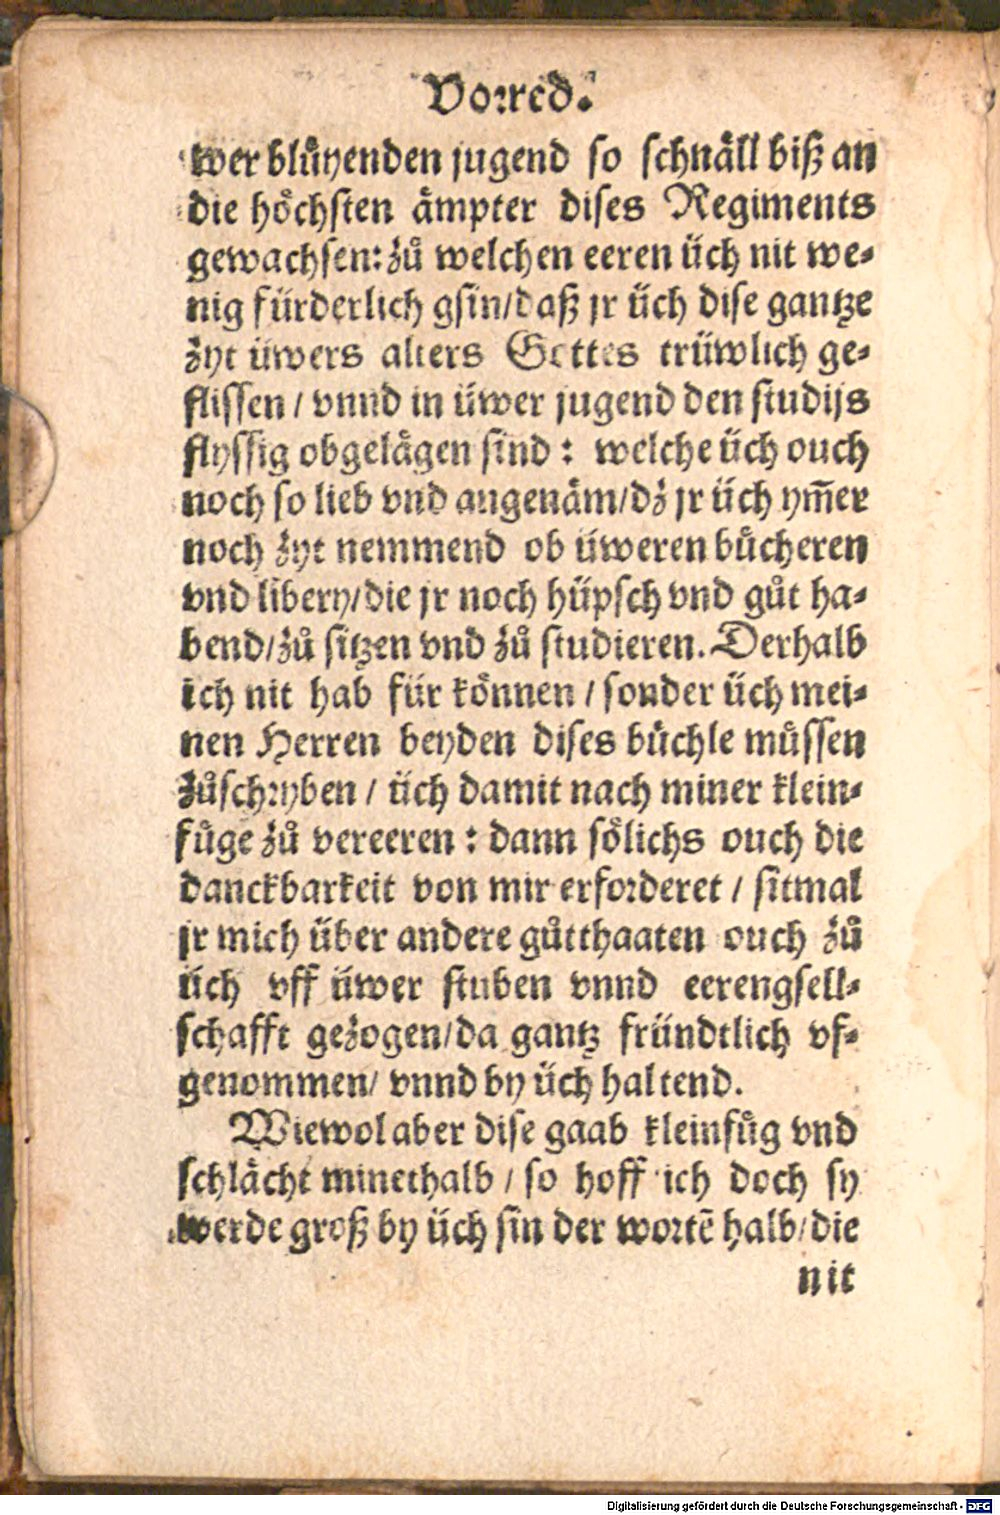 Vorred.
wer blüyenden jugend so schnäll biß an
die höchsten ämpter dises Regiments
gewachsen: zů welchen eeren üch nit we-
nig fürderlich gsin/daß jr üch dise gantze
zyt üwers alters Gottes trüwlich ge-
flissen / vnnd in üwer jugend den studijs
flyssig obgelägen sind : welche üch ouch
noch so lieb vnd angenäm/dz jr üch ym̃er
noch zyt nemmend ob üweren bücheren
vnd libery/die jr noch hüpsch vnd gůt ha-
bend/zů sitzen vnd zů studieren. Derhalb
ich nit hab für können / sonder üch mei-
nen Herren beyden dises büchle müssen
zůschryben / üch damit nach miner klein-
füge zů vereeren : dann sölichs ouch die
danckbarkeit von mir erforderet / sitmal
jr mich über andere gůtthaaten ouch zů
üch vff üwer stuben vnnd eerengsell-
schafft gezogen/da gantz fründtlich vf-
genommen/ vnnd by üch haltend.
Wiewol aber dise gaab kleinfüg vnd
schlächt minethalb / so hoff ich doch sy
werde groß by üch sin der wortẽ halb/die
nit
Digitalisierung gefördert durch die Deutsche Forschungsgemeinschaft - DFG